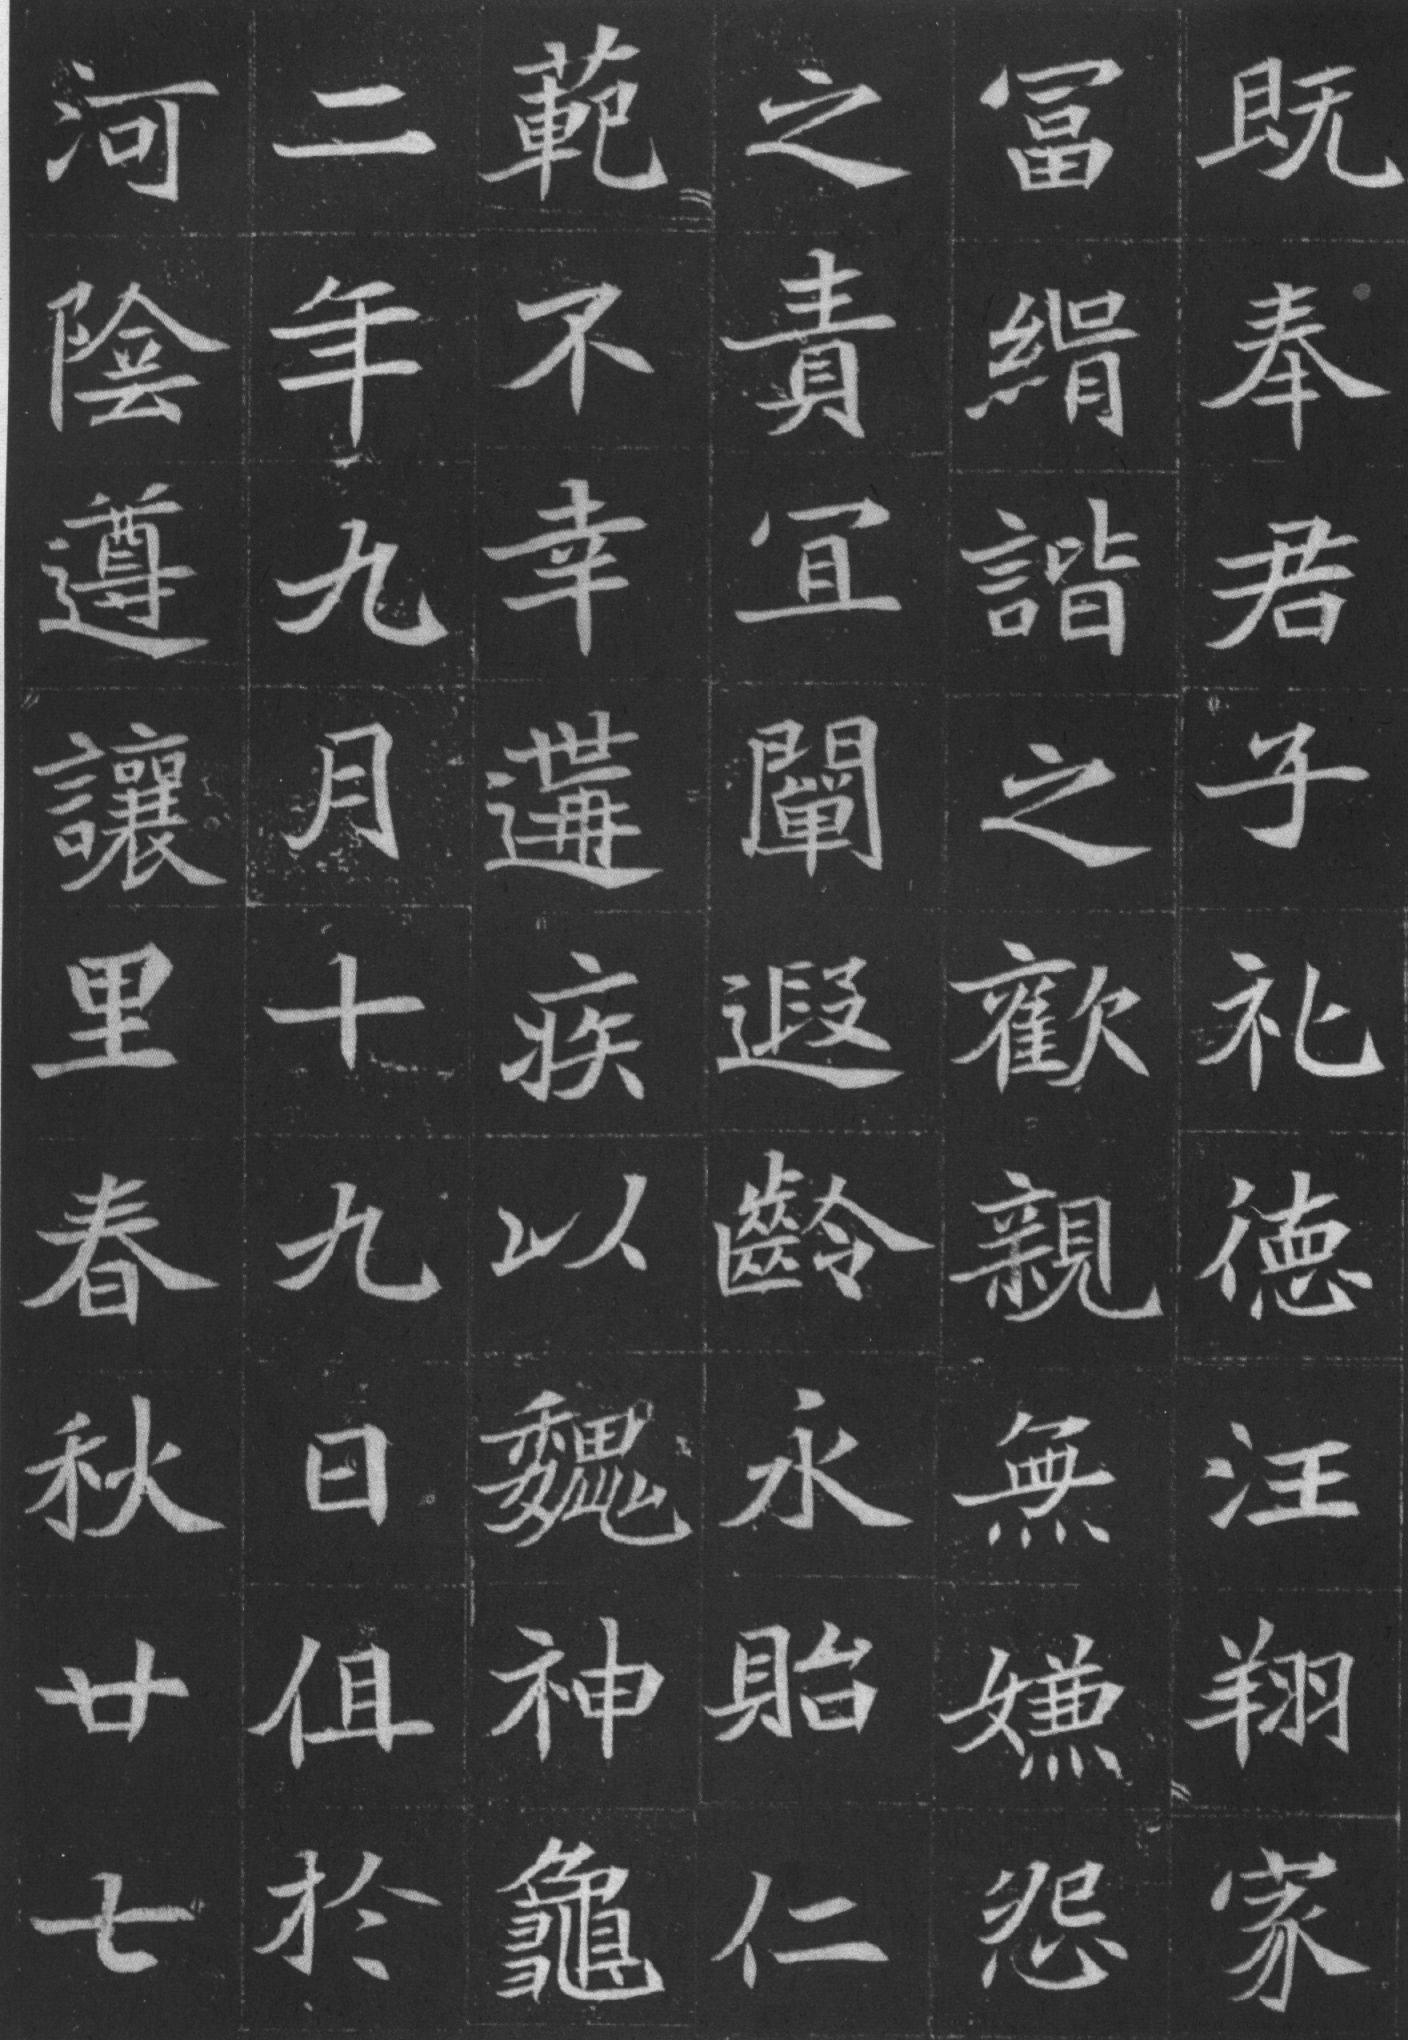 既奉君子礼徳汪翔家
冨縎諧之歡親無嫌怨
之責冝闡遐齡永貽仁
範不幸遘疾以魏神龜
二年九月十九日徂於
河陰遵讓里春秋廿七